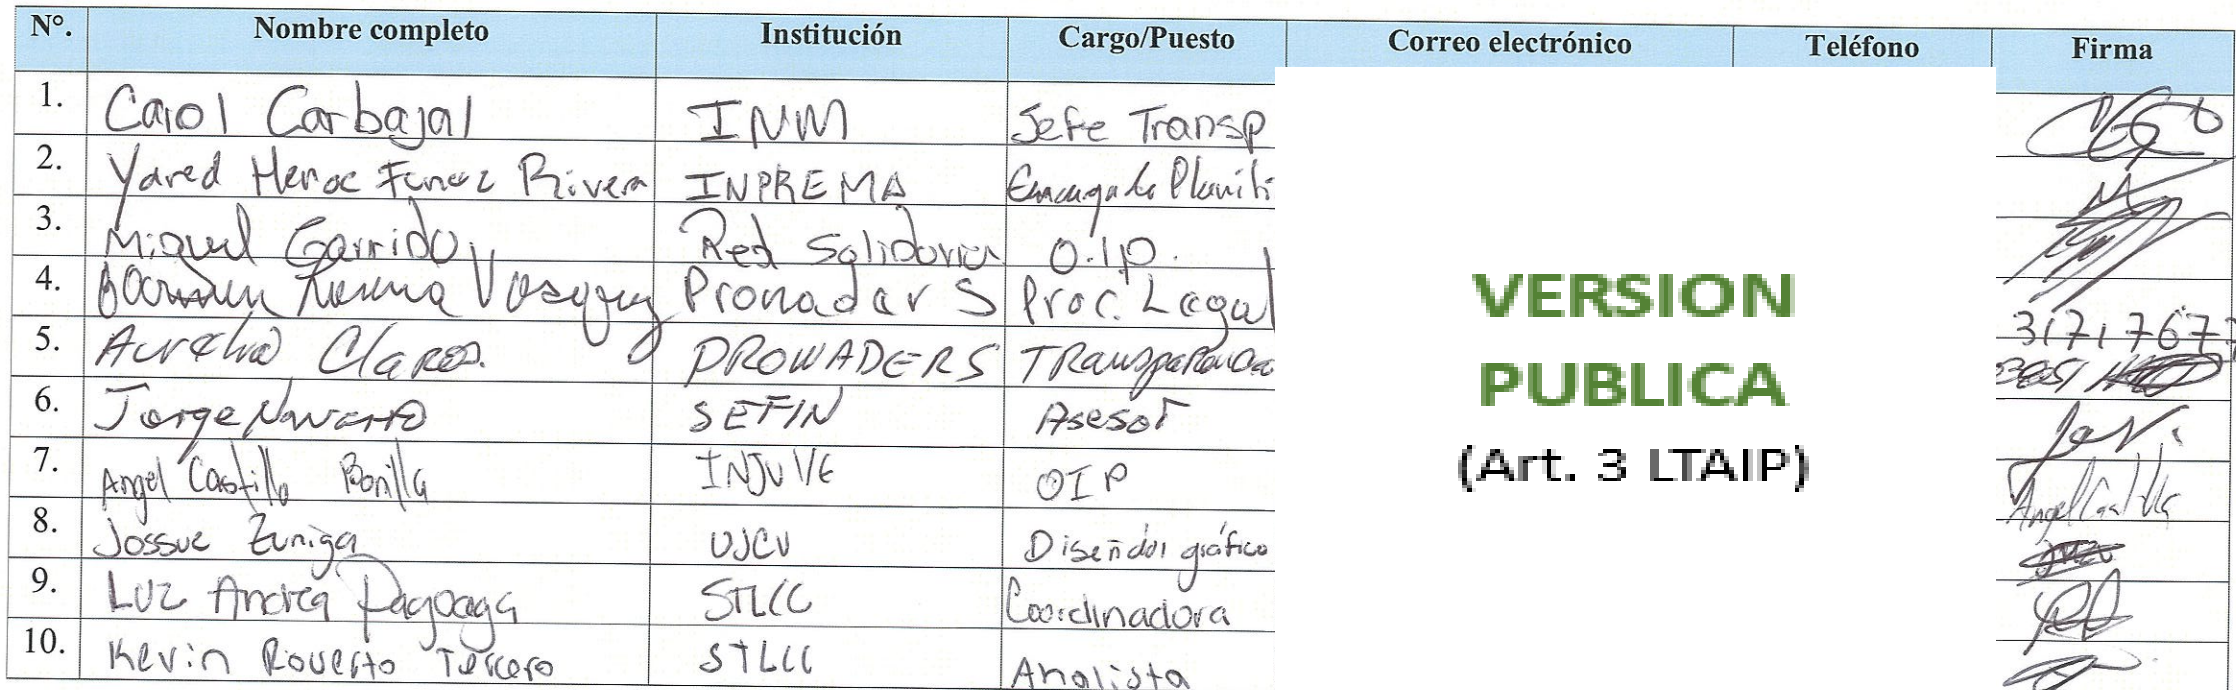 N°. Nombre completo Institución Cargo/Puesto Correo electrónico Teléfono Firma
1. Carol Carbajal INM Jefe Transp
2. Yared Henoc Funez Rivera INPREMA
3. Miguel Garrido Red Solidaria O.I.P.
4. Vasquez Pronadars Proc. Legal
5. Aurelio Claros. PROWADERS TRansparencia
6. Jorge Navarro SEFIN Asesor
7. Angel Castillo Bonilla INJUVE OIP
8. Jossue Zuniga UJCV Diseñdor gráfico
9. Luz Andrea Pagoaga STLCC Coordinadora
10. Kevin Roverto Tercero STLCC Analista
VERSION
PUBLICA
(Art. 3 LTAIP)